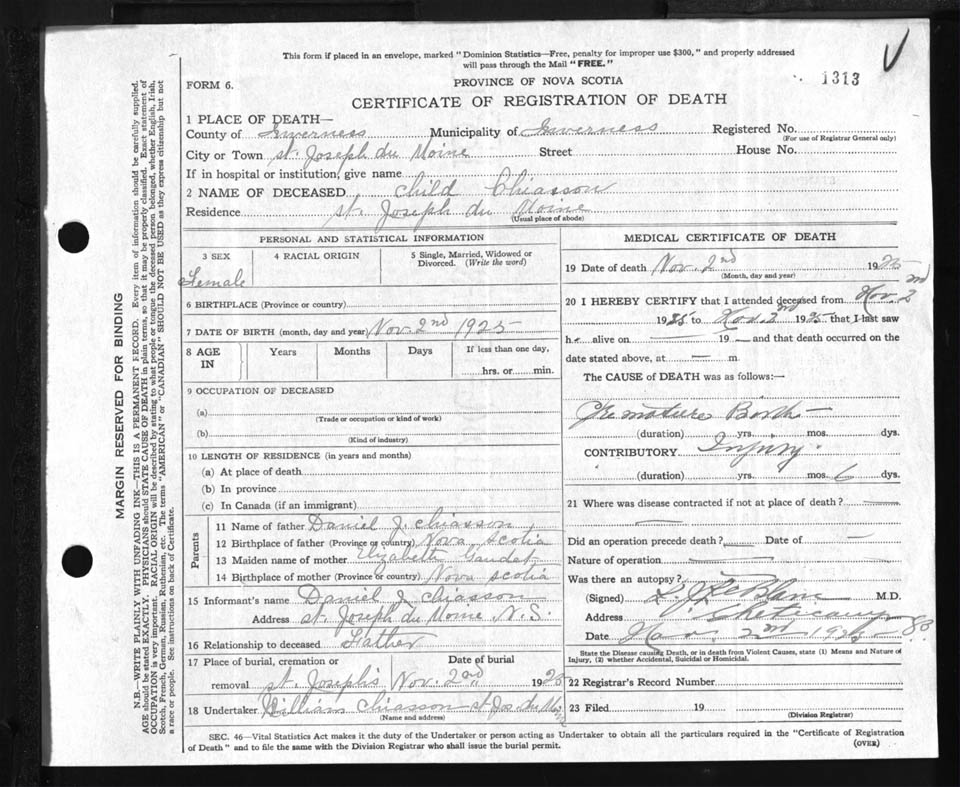 This form if placed in an envelope, marked "Dominion Statistics—Free, penalty for improper use $300," and properly addressed
will pass through the Mail "FREE."
1313
FORM 6.
PROVINCE OF NOVA SCOTIA
CERTIFICATE OF REGISTRATION OF DEATH
1 PLACE OF DEATH—
County of Inverness Municipality of Inverness Registered No.
(For use of Registrar General only)
City or Town St. Joseph du Moine Street House No.
If in hospital or institution, give name
2 NAME OF DECEASED child Chiasson
Residence St. Joseph du Moine
(Usual place of abode)
PERSONAL AND STATISTICAL INFORMATION
3 SEX 4 RACIAL ORIGIN 5 Single, Married, Widowed or
Divorced. (Write the word)
Female
6 BIRTHPLACE (Province or country)
7 DATE OF BIRTH (month, day and year) Nov. 2nd 1925
8 AGE
IN
Years Months Days If less than one day,
hrs. or min.
9 OCCUPATION OF DECEASED
(a)
(Trade or occupation or kind of work)
(b)
(Kind of industry)
10 LENGTH OF RESIDENCE (in years and months)
(a) At place of death
(b) In province
(c) In Canada (if an immigrant)
Parents
11 Name of father Daniel J. Chiasson
12 Birthplace of father (Province or country) Nova Scotia
13 Maiden name of mother Elizabeth Gaudet
14 Birthplace of mother (Province or country) Nova Scotia
15 Informant's name Daniel J. Chiasson
Address St. Joseph du Moine N.S.
16 Relationship to deceased Father
17 Place of burial, cremation or Date of burial
removal St. Joseph's Nov. 2nd 1925
18 Undertaker William Chiasson St. Jos. du
(Name and address)
MEDICAL CERTIFICATE OF DEATH
19 Date of death Nov. 2nd 1925
(Month, day and year)
20 I HEREBY CERTIFY that I attended deceased from Nov. 2nd
1925 to Nov. 2nd 1925 that I last saw
h e alive on — 19 — and that death occurred on the
date stated above, at — m.
The CAUSE of DEATH was as follows:—
Premature Birth —
(duration) yrs. mos. dys.
CONTRIBUTORY Injury
(duration) yrs. mos. 6 dys.
21 Where was disease contracted if not at place of death? —
—
Did an operation precede death? — Date of —
Nature of operation —
Was there an autopsy?
(Signed) L. J. LeBlanc M.D.
Address Cheticamp
Date Nov. 2nd 1925
State the Disease causing Death, or in death from Violent Causes, state (1) Means and Nature of
Injury, (2) whether Accidental, Suicidal or Homicidal.
22 Registrar's Record Number
23 Filed 19
(Division Registrar)
SEC. 46—Vital Statistics Act makes it the duty of the Undertaker or person acting as Undertaker to obtain all the particulars required in the "Certificate of Registration
of Death" and to file the same with the Division Registrar who shall issue the burial permit. (OVER)
MARGIN RESERVED FOR BINDING
N.B.—WRITE PLAINLY WITH UNFADING INK—THIS IS A PERMANENT RECORD. Every item of information should be carefully supplied.
AGE should be stated EXACTLY. PHYSICIANS should STATE CAUSE OF DEATH in plain terms, so that it may be properly classified. Exact statement of
OCCUPATION is very important. RACIAL ORIGIN will be described by stating to what people or tongue the deceased person belonged, whether English, Irish,
Scotch, French, German, Russian, Ruthenian, etc. The terms "AMERICAN" or "CANADIAN" SHOULD NOT BE USED as they express citizenship but not
a race or people. See instructions on back of Certificate.